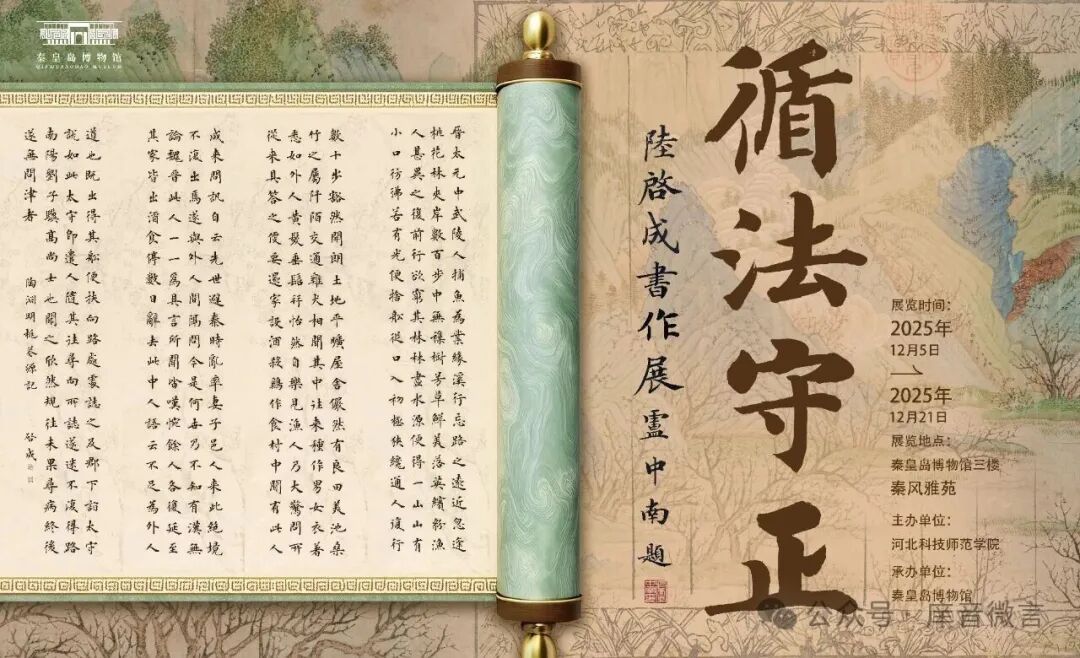 秦皇岛博物馆
QINHUANGDAO MUSEUM
循法守正
陸啓成書作展 盧中南題
展览时间：
2025年
12月5日
2025年
12月21日
展览地点：
秦皇岛博物馆三楼
秦风雅苑
主办单位：
河北科技师范学院
承办单位：
秦皇岛博物馆
晉太元中武陵人捕魚為業緣溪行忘路之遠近忽逢
桃花林夾岸數百步中無雜樹芳草鮮美落英繽紛漁
人甚異之復前行欲窮其林林盡水源便得一山山有
小口彷彿若有光便捨船從口入初極狹纔通人復行
數十步豁然開朗土地平曠屋舍儼然有良田美池桑
竹之屬阡陌交通雞犬相聞其中往來種作男女衣著
悉如外人黃髮垂髫並怡然自樂見漁人乃大驚問所
從來具答之便要還家設酒殺雞作食村中聞有此人
咸來問訊自云先世避秦時亂率妻子邑人來此絕境
不復出焉遂與外人間隔問今是何世乃不知有漢無
論魏晉此人一一為具言所聞皆嘆惋餘人各復延至
其家皆出酒食停數日辭去此中人語云不足為外人
道也既出得其船便扶向路處處誌之及郡下詣太守
說如此太守即遣人隨其往尋向所誌遂迷不復得路
南陽劉子驥高尚士也聞之欣然規往未果尋病終後
遂無問津者 陶淵明桃花源記 啓成
公众号 · 音微言